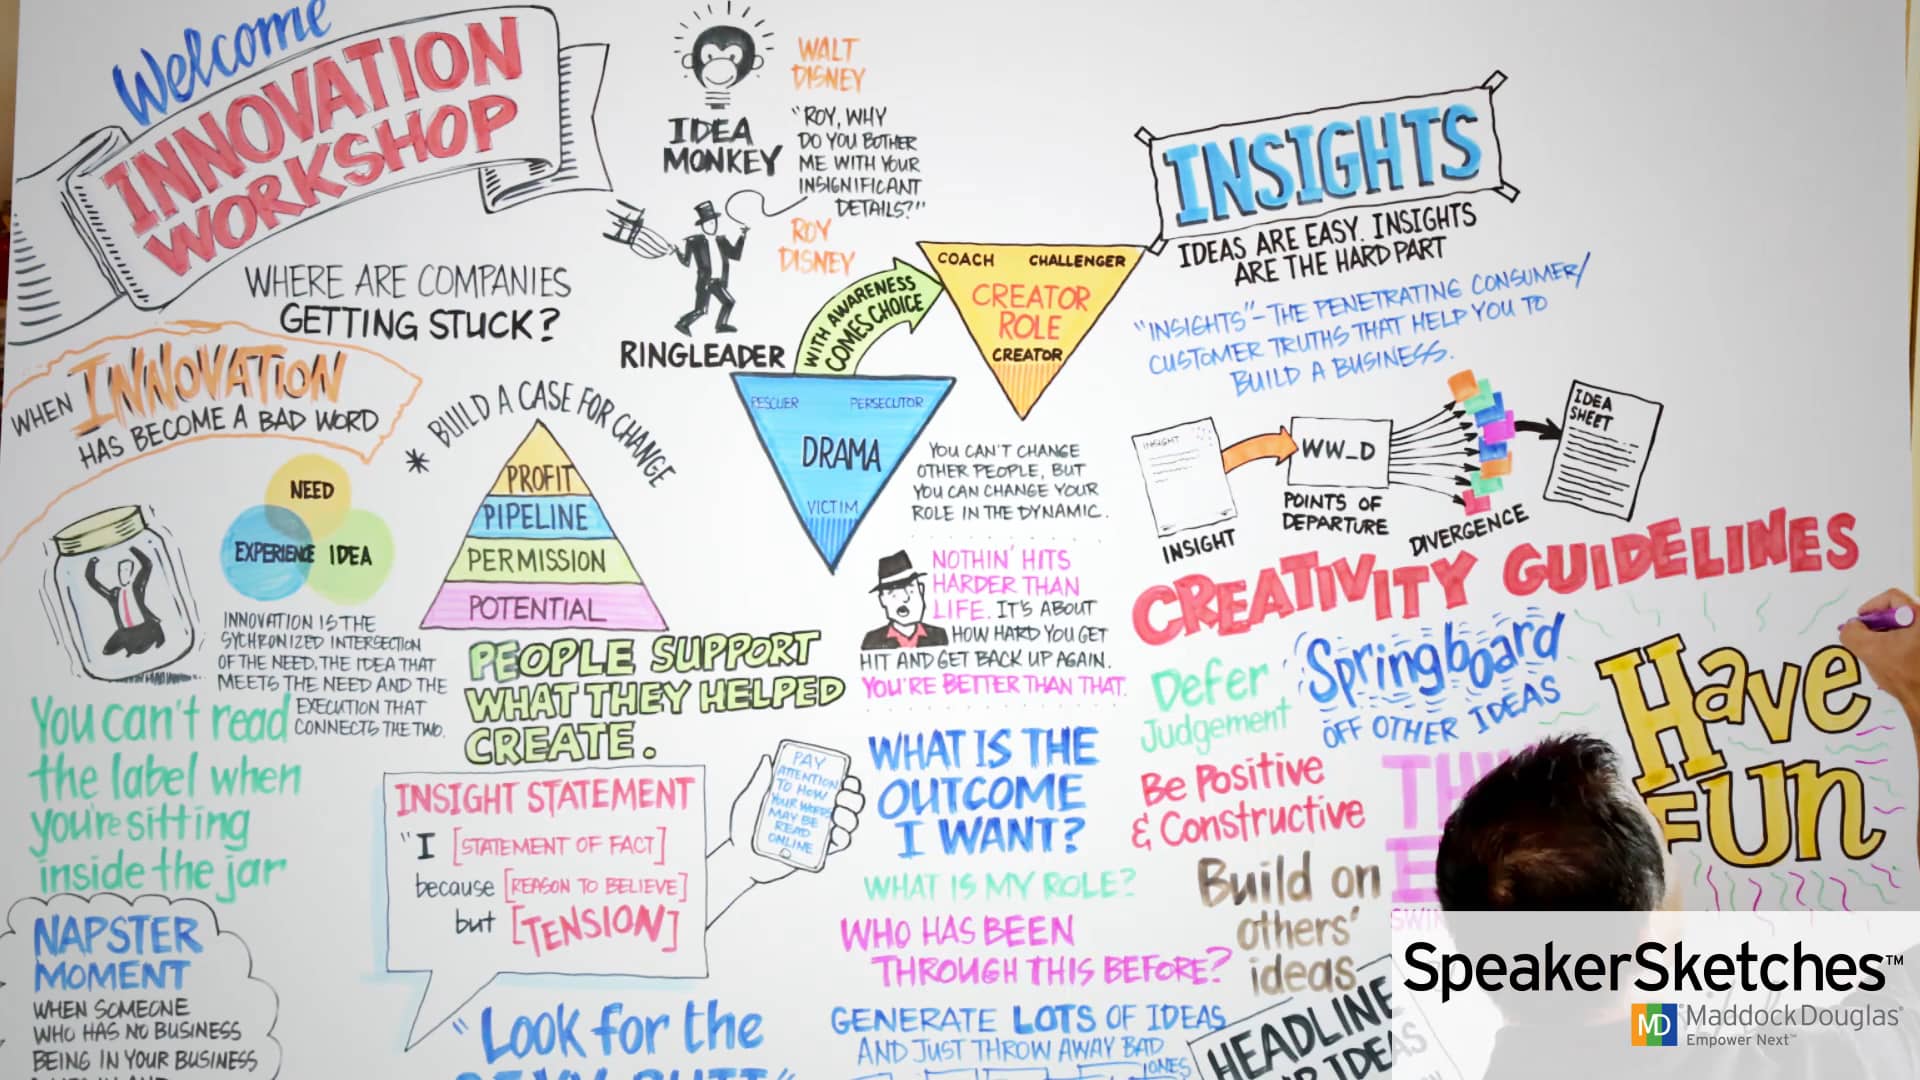 Welcome
INNOVATION
WORKSHOP
WHERE ARE COMPANIES
GETTING STUCK?
WHEN INNOVATION
HAS BECOME A BAD WORD
NEED
EXPERIENCE IDEA
INNOVATION IS THE
SYCHRONIZED INTERSECTION
OF THE NEED. THE IDEA THAT
MEETS THE NEED AND THE
EXECUTION THAT
CONNECTS THE TWO.
You can't read
the label when
you're sitting
inside the jar
NAPSTER
MOMENT
WHEN SOMEONE
WHO HAS NO BUSINESS
BEING IN YOUR BUSINESS
* BUILD A CASE FOR CHANGE
PROFIT
PIPELINE
PERMISSION
POTENTIAL
PEOPLE SUPPORT
WHAT THEY HELPED
CREATE.
INSIGHT STATEMENT
"I [STATEMENT OF FACT]
because [REASON TO BELIEVE]
but [TENSION]
PAY
ATTENTION
TO HOW
YOUR WORDS
MAY BE
READ
ONLINE
"LOOK for the
IDEA
MONKEY
WALT
DISNEY
"ROY, WHY
DO YOU BOTHER
ME WITH YOUR
INSIGNIFICANT
DETAILS?"
ROY
DISNEY
RINGLEADER
WITH AWARENESS
COMES CHOICE
COACH CHALLENGER
CREATOR
ROLE
CREATOR
RESCUER PERSECUTOR
DRAMA
VICTIM
YOU CAN'T CHANGE
OTHER PEOPLE, BUT
YOU CAN CHANGE YOUR
ROLE IN THE DYNAMIC.
NOTHIN' HITS
HARDER THAN
LIFE. IT'S ABOUT
HOW HARD YOU GET
HIT AND GET BACK UP AGAIN.
YOU'RE BETTER THAN THAT.
WHAT IS THE
OUTCOME
I WANT?
WHAT IS MY ROLE?
WHO HAS BEEN
THROUGH THIS BEFORE?
GENERATE LOTS OF IDEAS
AND JUST THROW AWAY BAD
ONES
INSIGHTS
IDEAS ARE EASY. INSIGHTS
ARE THE HARD PART
"INSIGHTS" - THE PENETRATING CONSUMER/
CUSTOMER TRUTHS THAT HELP YOU TO
BUILD A BUSINESS.
INSIGHT
WW_D
IDEA
SHEET
INSIGHT
POINTS OF
DEPARTURE
DIVERGENCE
CREATIVITY GUIDELINES
Defer
Judgement
Springboard
OFF OTHER IDEAS
Have
FUN
Be Positive
& Constructive
Build on
others'
ideas
HEADLINE
SpeakerSketches™
MD MaddockDouglas®
Empower Next™